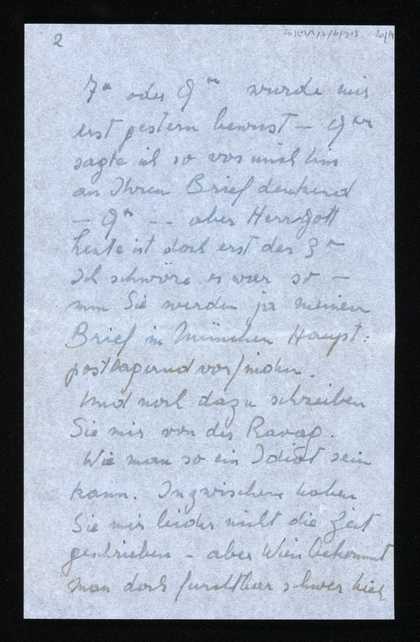 2
7ᵗᵉ oder 9ᵗᵉ wurde mir
erst gestern bewusst – 9ᵗᵉʳ
sagte ich so vor mich hin
an Ihren Brief denkend
– 9ᵗᵉ – – aber Herrgott
heute ist doch erst der 3ᵗᵉ
Ich schwöre es war so –
nun Sie werden ja meinen
Brief in München Haupt:
postlagernd vorfinden.
Und noch dazu schreiben
Sie mir von der Ravag.
Wie man so ein Idiot sein
kann. Inzwischen haben
Sie mir leider nicht die Zeit
geschrieben – aber Wien bekommt
man doch furchtbar schwer hier